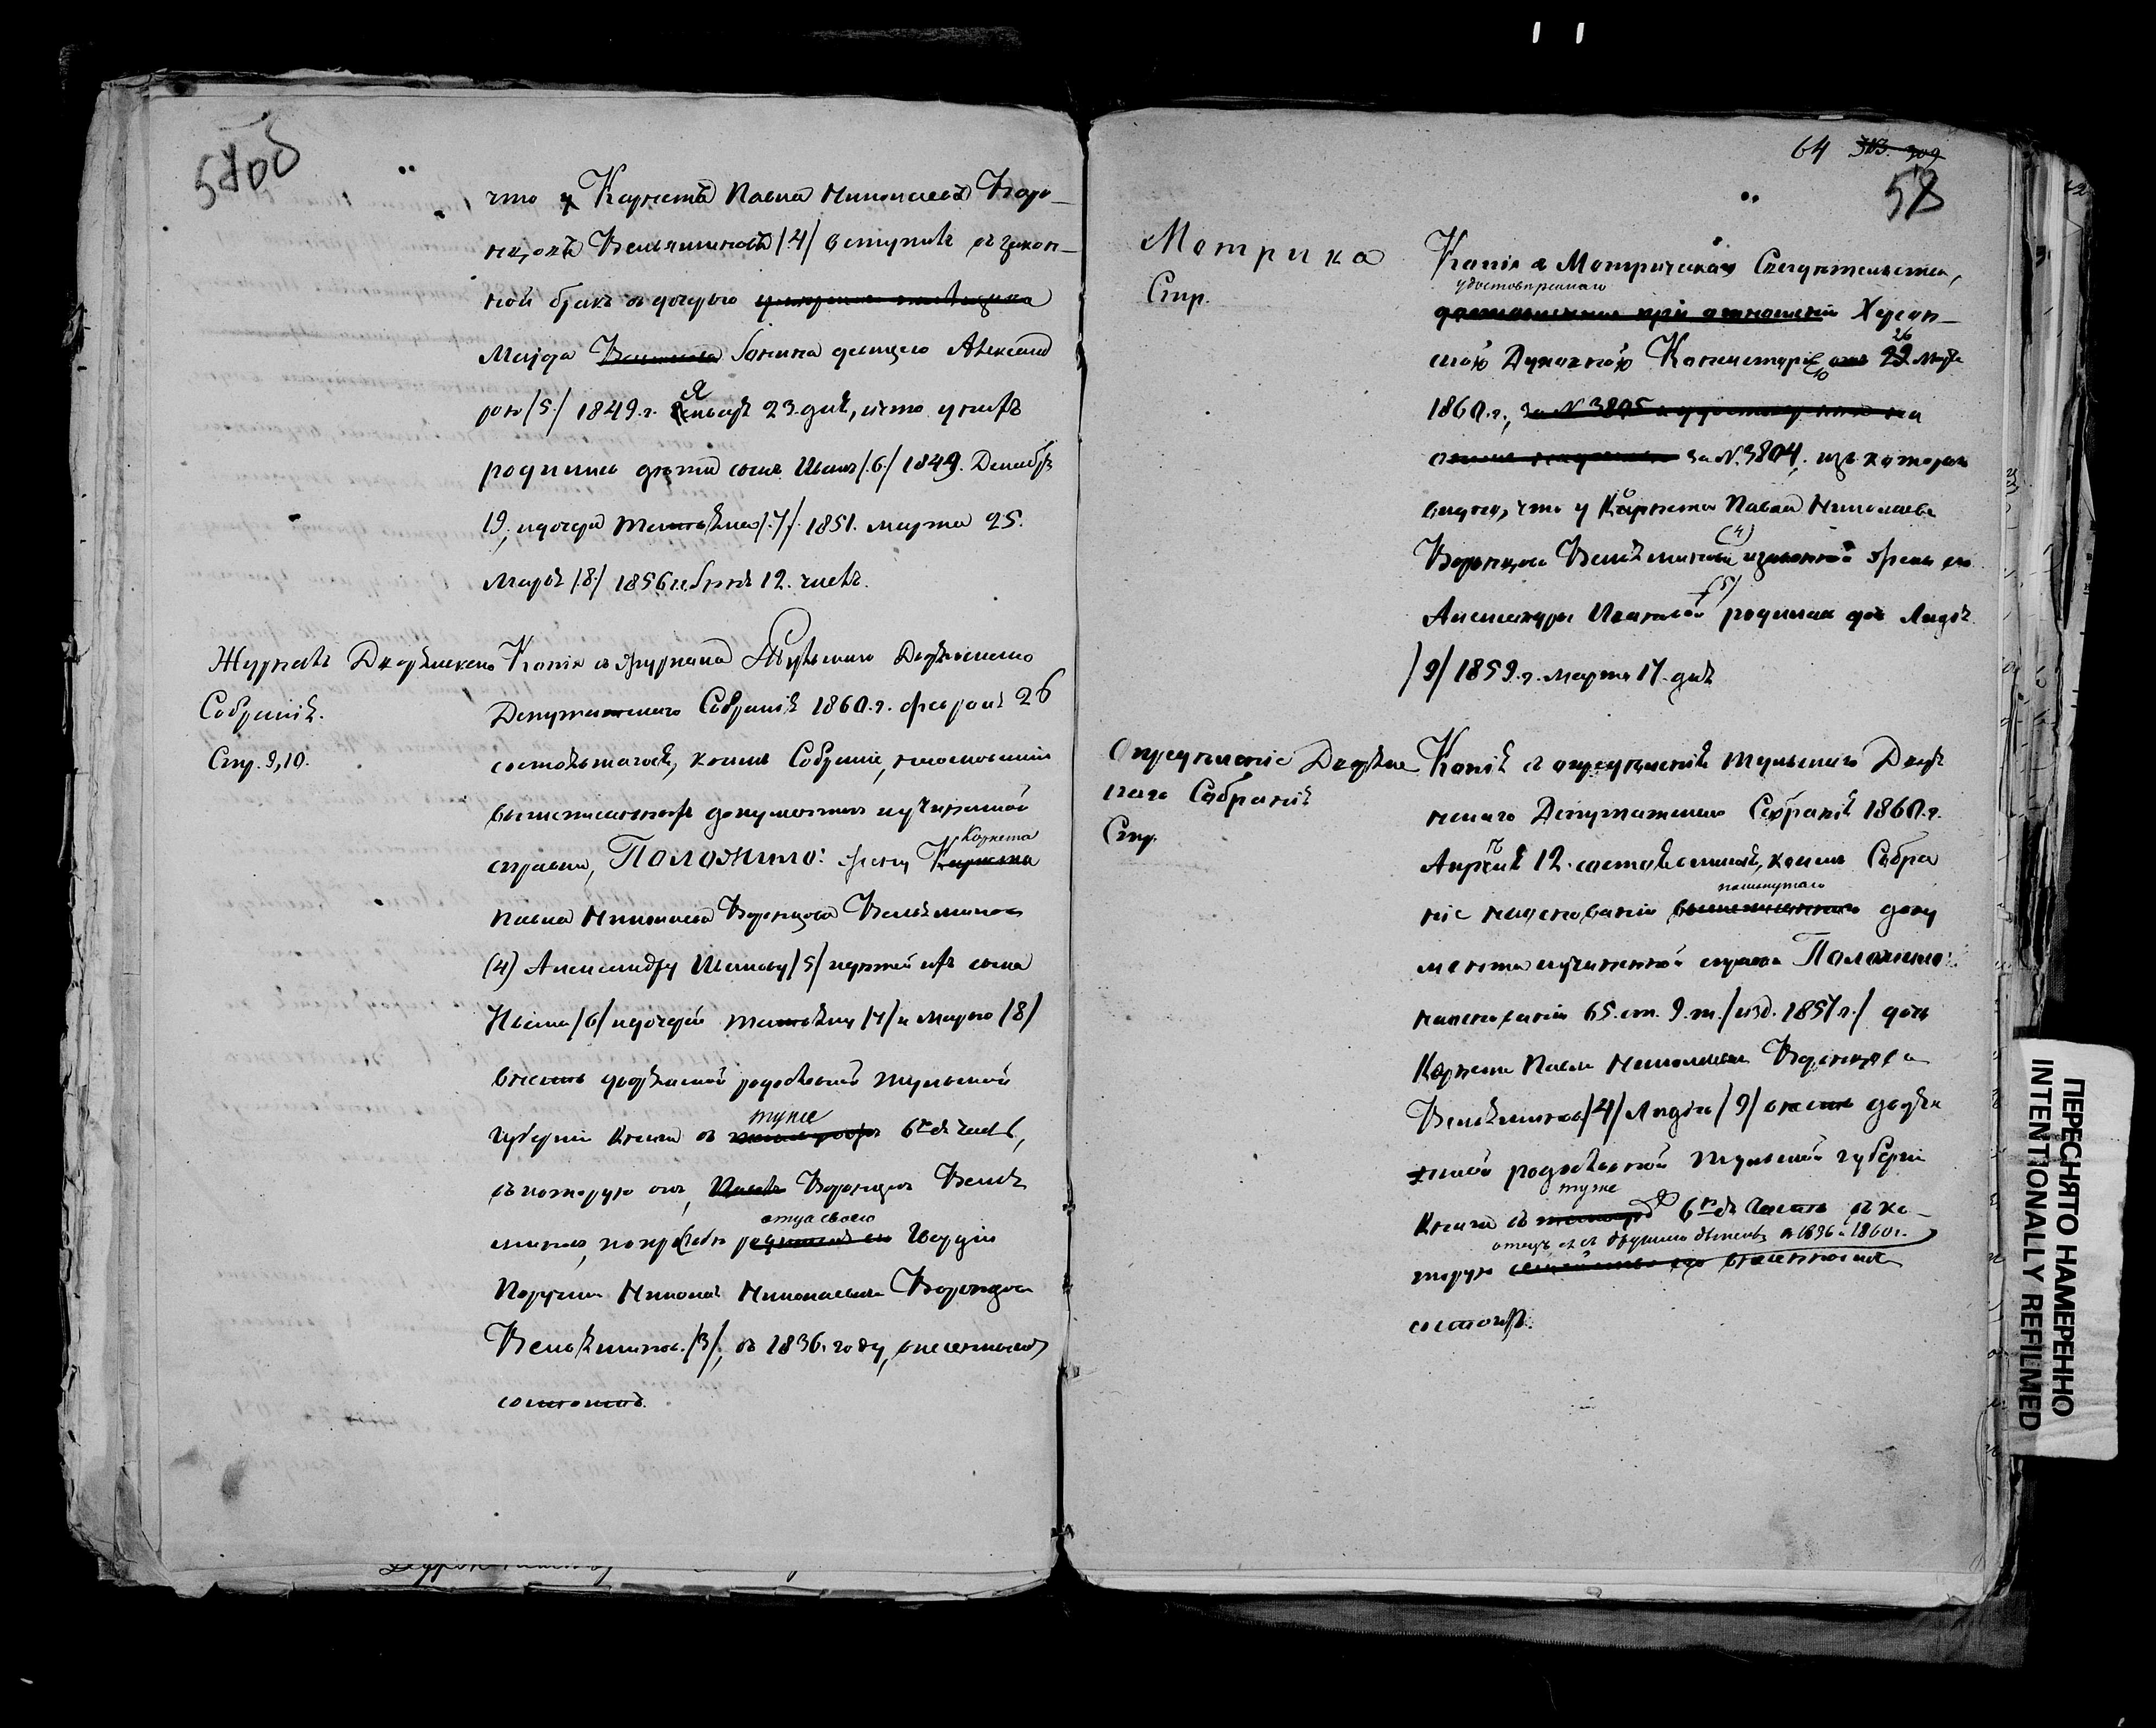 что Корнетъ Павла Николаевъ Ворон-
цовъ Вельяминовъ /4/ вступилъ въ закон-
ной бракъ съ дочерью
Маіора девицею Александ
рою /5/ 1849. г. Января 23. дня, и что у нихъ
родились дети сынъ Иванъ /6/ 1849. Декабря
19, и дочери Татьяна /7/ 1851. марта 25.
Марья /8/ 1856 12. числъ.
Журналъ Дворянскаго
Собранія.
Стр. 9, 10.
Копія съ журнала Тульскаго Дворянскаго
Депутатскаго Собранія 1860. г. февраля 26
состоявшагося, коимъ Собраніе, на основаніи
вышеписанныхъ документовъ и учиненной
справки, Положило: жену Корнета
Павла Николаева Воронцова Вельяминова
(4) Александру Иванову /5/ и детей ихъ сына
Ивана /6/ и дочерей Татьяну /7/ и Марью /8/
внесть дворянской родословной Тульской
Губерніи книги въ туже 6ю часть,
въ которую онъ, Воронцовъ Велья
миновъ, по просьбе отца своего Гвардіи
Поручика Николая Николаевича Воронцова
Вельяминова /3/, въ 1836. году, внесеннымъ
состоитъ.
64
58
Метрика
Стр.
Копія съ Метрическаго Свидетельства,
удостовереннаго
Херсон-
скою Духовною Консисторіею 26 Марта
1860. г.,
за N. 3804, изъ котораго
видно, что у Корнета Павла Николаева
Воронцова Вельяминова (4) и законной жены его
Александры Ивановой (5) родилась дочь Лидія
/9/ 1859. г. марта 17. дня
Определеніе Дворян
скаго Собранія
Стр.
Копія съ определенія Тульскаго Дворян
скаго Депутатскаго Собранія 1860. г.
Апреля 12. состоявшагося, коимъ Собра
ніе на основаніи помянутаго доку
мента и учиненной справки Положило:
на основаніи 65. ст. 9. т. /изд. 1857 г./ дочь
Корнета Павла Николаева Воронцова
Вельяминова /4/ Лидію /9/ внесть дворян
ской родословной Тульской губерніи
книги въ туже 6ю часть въ ко-
торую отецъ ея съ другими детьми въ 1836 и 1860 г.
внесенными
состоятъ.
ПЕРЕСНЯТО НАМЕРЕННО
INTENTIONALLY REFILMED